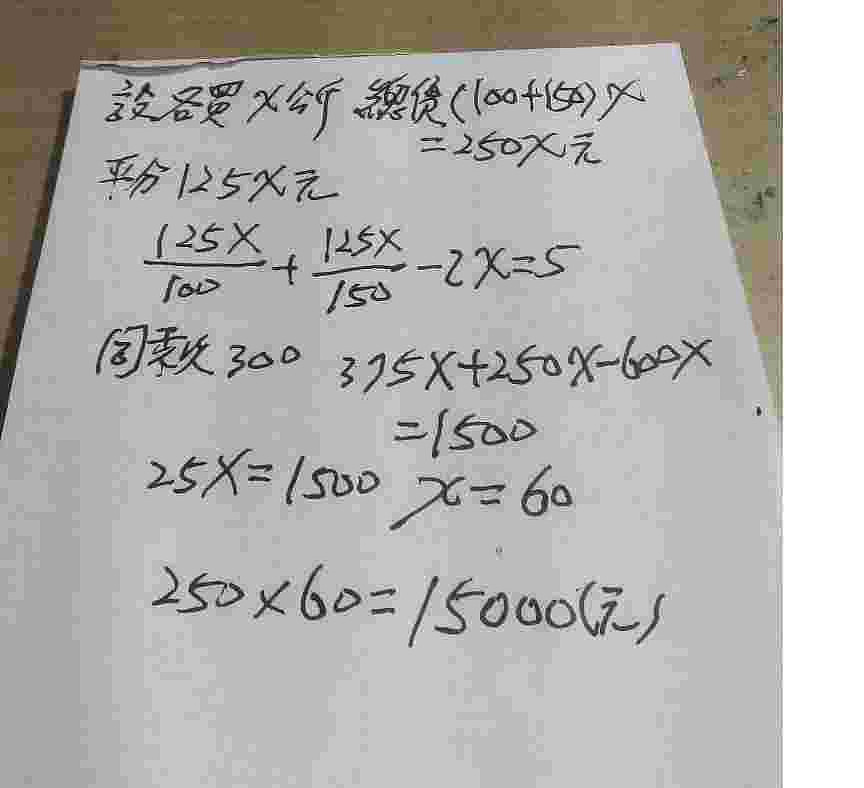 設各買x公斤 總價(100+150)x
=250x元
平分125x元
125x/100 + 125x/150 - 2x = 5
同乘300 375x+250x-600x
=1500
25x=1500 x=60
250×60=15000(元)